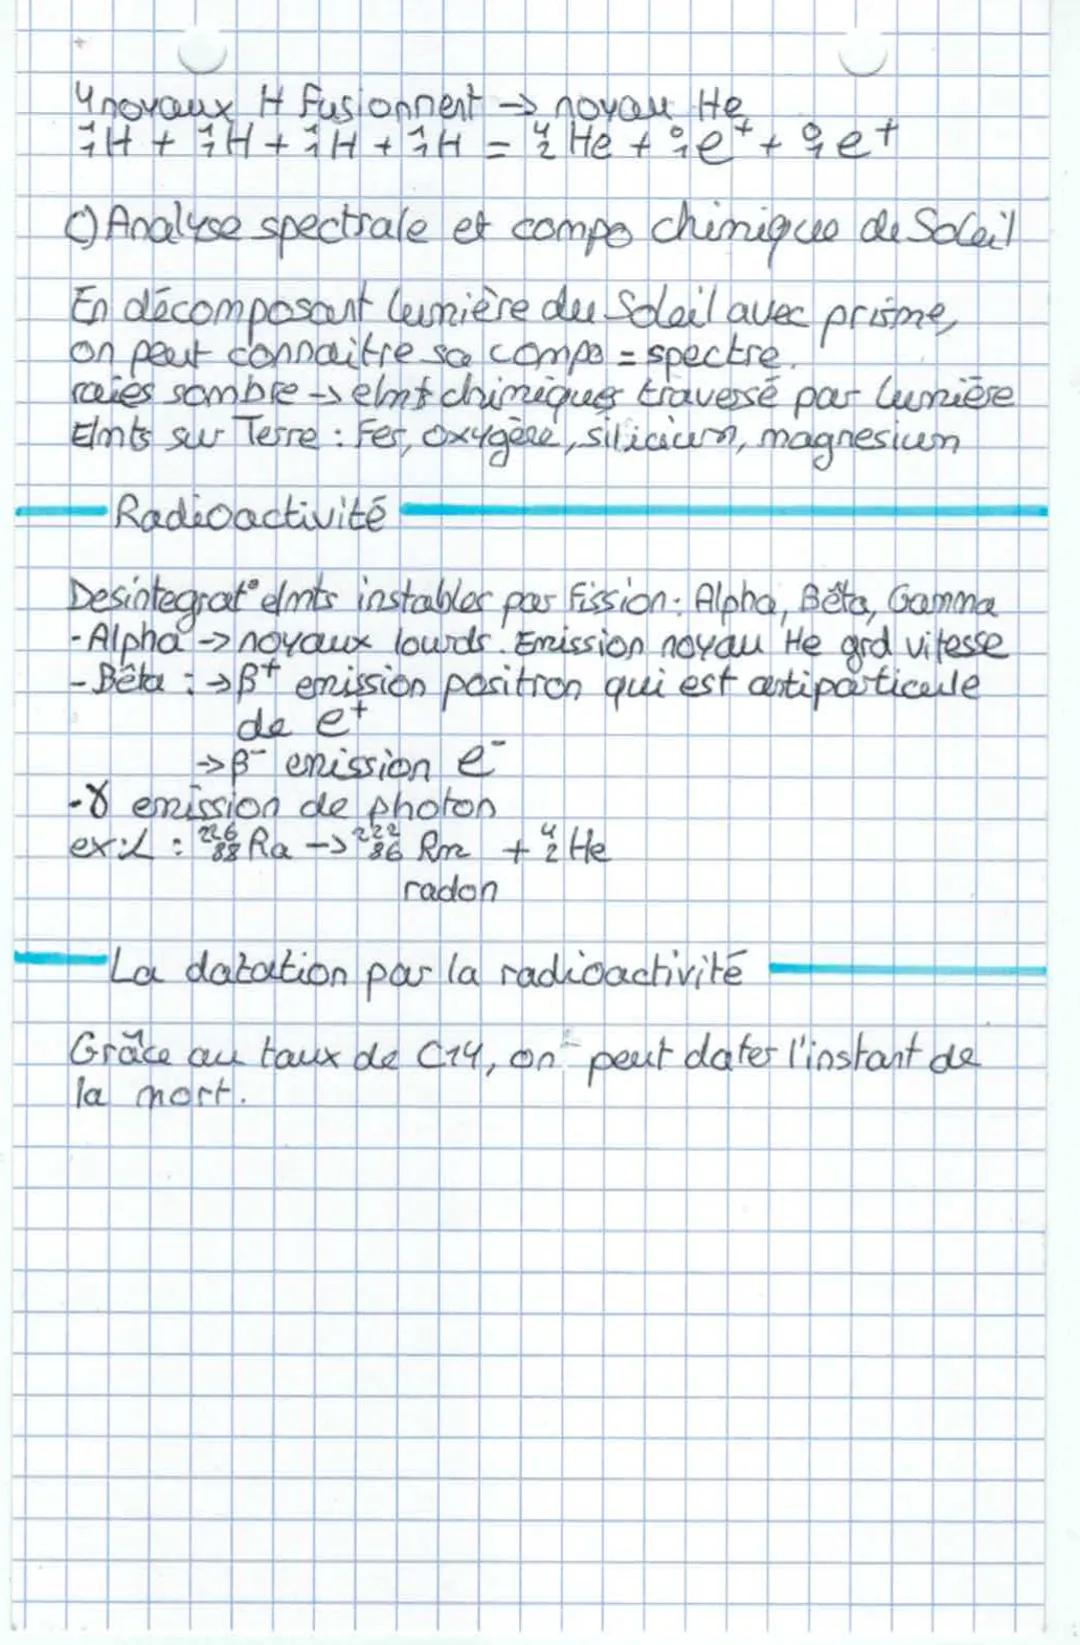 4 noyaux H fusionnent → noyau He
¹₁H + ¹₁H + ¹₁H + ¹₁H = ⁴₂He + ⁰₁e⁺ + ⁰₁e⁺
c) Analyse spectrale et compo chimique de Soleil
En décomposant lumière du Soleil avec prisme,
on peut connaitre sa compo = spectre.
raies sombre → elmt chimiques traversé par lumière
Elmts sur Terre : Fer, oxygène, silicium, magnesium
Radioactivité
Desintegrat° elmts instables par fission : Alpha, Bêta, Gamma
- Alpha → noyaux lourds. Emission noyau He grd vitesse
- Bêta : → β⁺ emission positron qui est antiparticule
de e⁺
→ β⁻ emission e⁻
- γ emission de photon
ex : α : ²²⁶₈₈Ra → ²²²₈₆Rn + ⁴₂He
radon
La datation par la radioactivité
Grâce au taux de C14, on peut dater l'instant de
la mort.